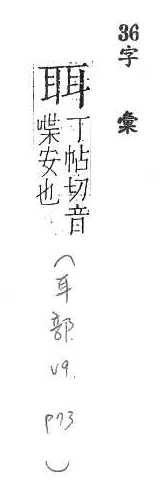 36字彙
聑
丁帖切音
喋安也
(耳部 V9. P73)